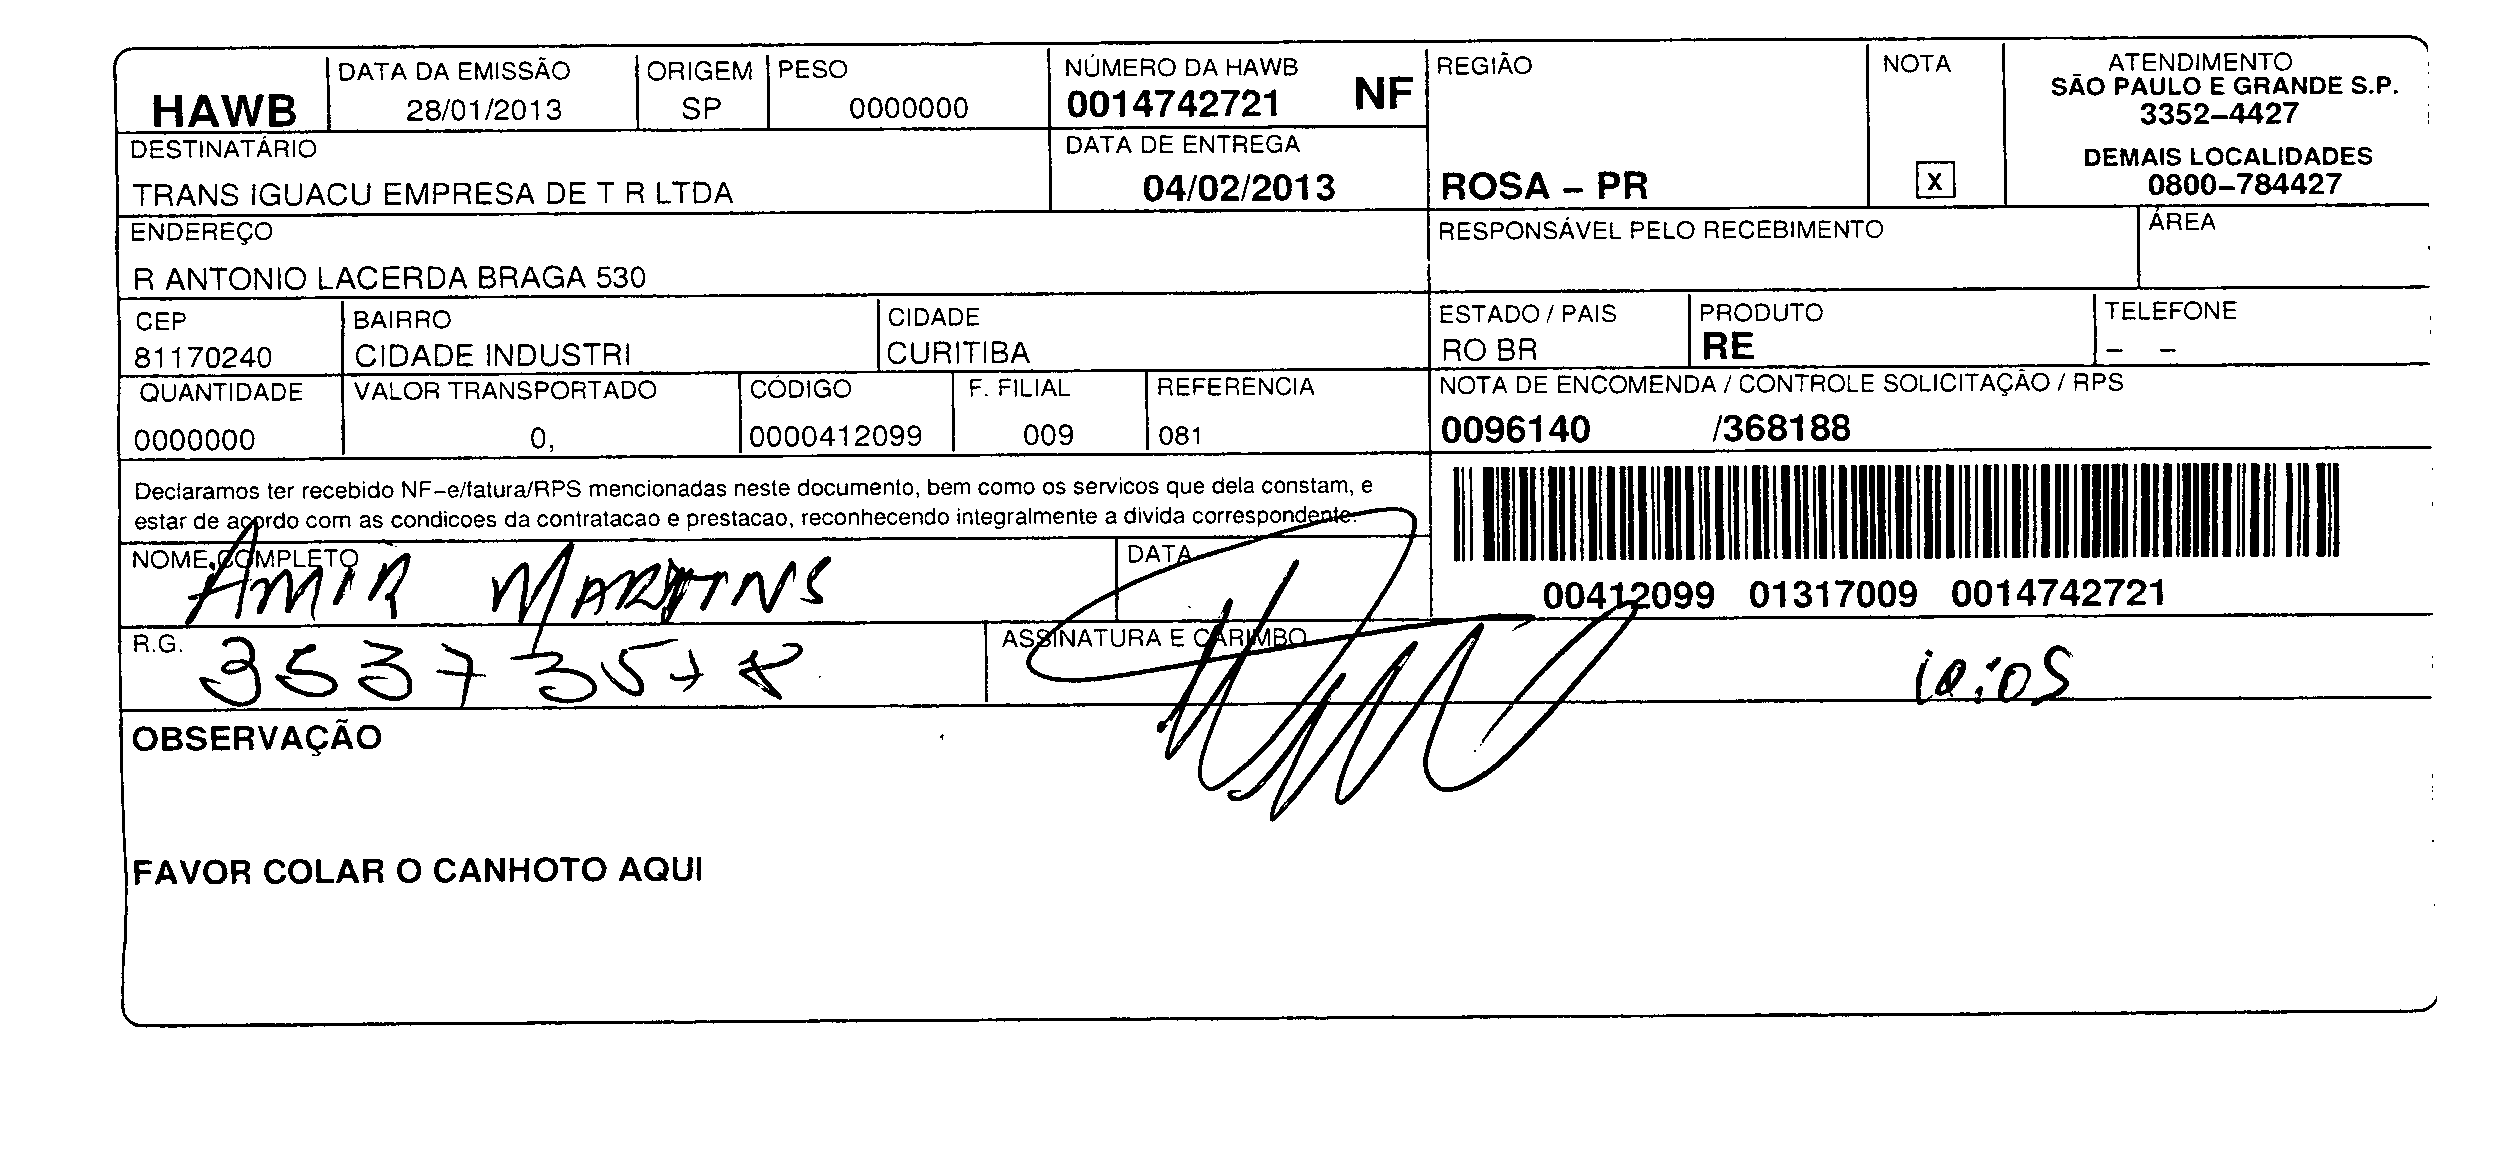 HAWB
DATA DA EMISSÃO
28/01/2013
ORIGEM
SP
PESO
0000000
NÚMERO DA HAWB
0014742721 NF
REGIÃO
ROSA – PR
NOTA
X
ATENDIMENTO
SÃO PAULO E GRANDE S.P.
3352–4427
DEMAIS LOCALIDADES
0800–784427
DESTINATÁRIO
TRANS IGUACU EMPRESA DE T R LTDA
DATA DE ENTREGA
04/02/2013
ENDEREÇO
R ANTONIO LACERDA BRAGA 530
RESPONSÁVEL PELO RECEBIMENTO
ÁREA
CEP
81170240
BAIRRO
CIDADE INDUSTRI
CIDADE
CURITIBA
ESTADO / PAIS
RO BR
PRODUTO
RE
TELEFONE
– –
QUANTIDADE
0000000
VALOR TRANSPORTADO
0,
CÓDIGO
0000412099
F. FILIAL
009
REFERENCIA
081
NOTA DE ENCOMENDA / CONTROLE SOLICITAÇÃO / RPS
0096140 /368188
Declaramos ter recebido NF–e/fatura/RPS mencionadas neste documento, bem como os servicos que dela constam, e
estar de acordo com as condicoes da contratacao e prestacao, reconhecendo integralmente a divida correspondente.
00412099 01317009 0014742721
NOME COMPLETO
AMIR MARTINS
DATA
R.G.
ASSINATURA E CARIMBO
OBSERVAÇÃO
FAVOR COLAR O CANHOTO AQUI